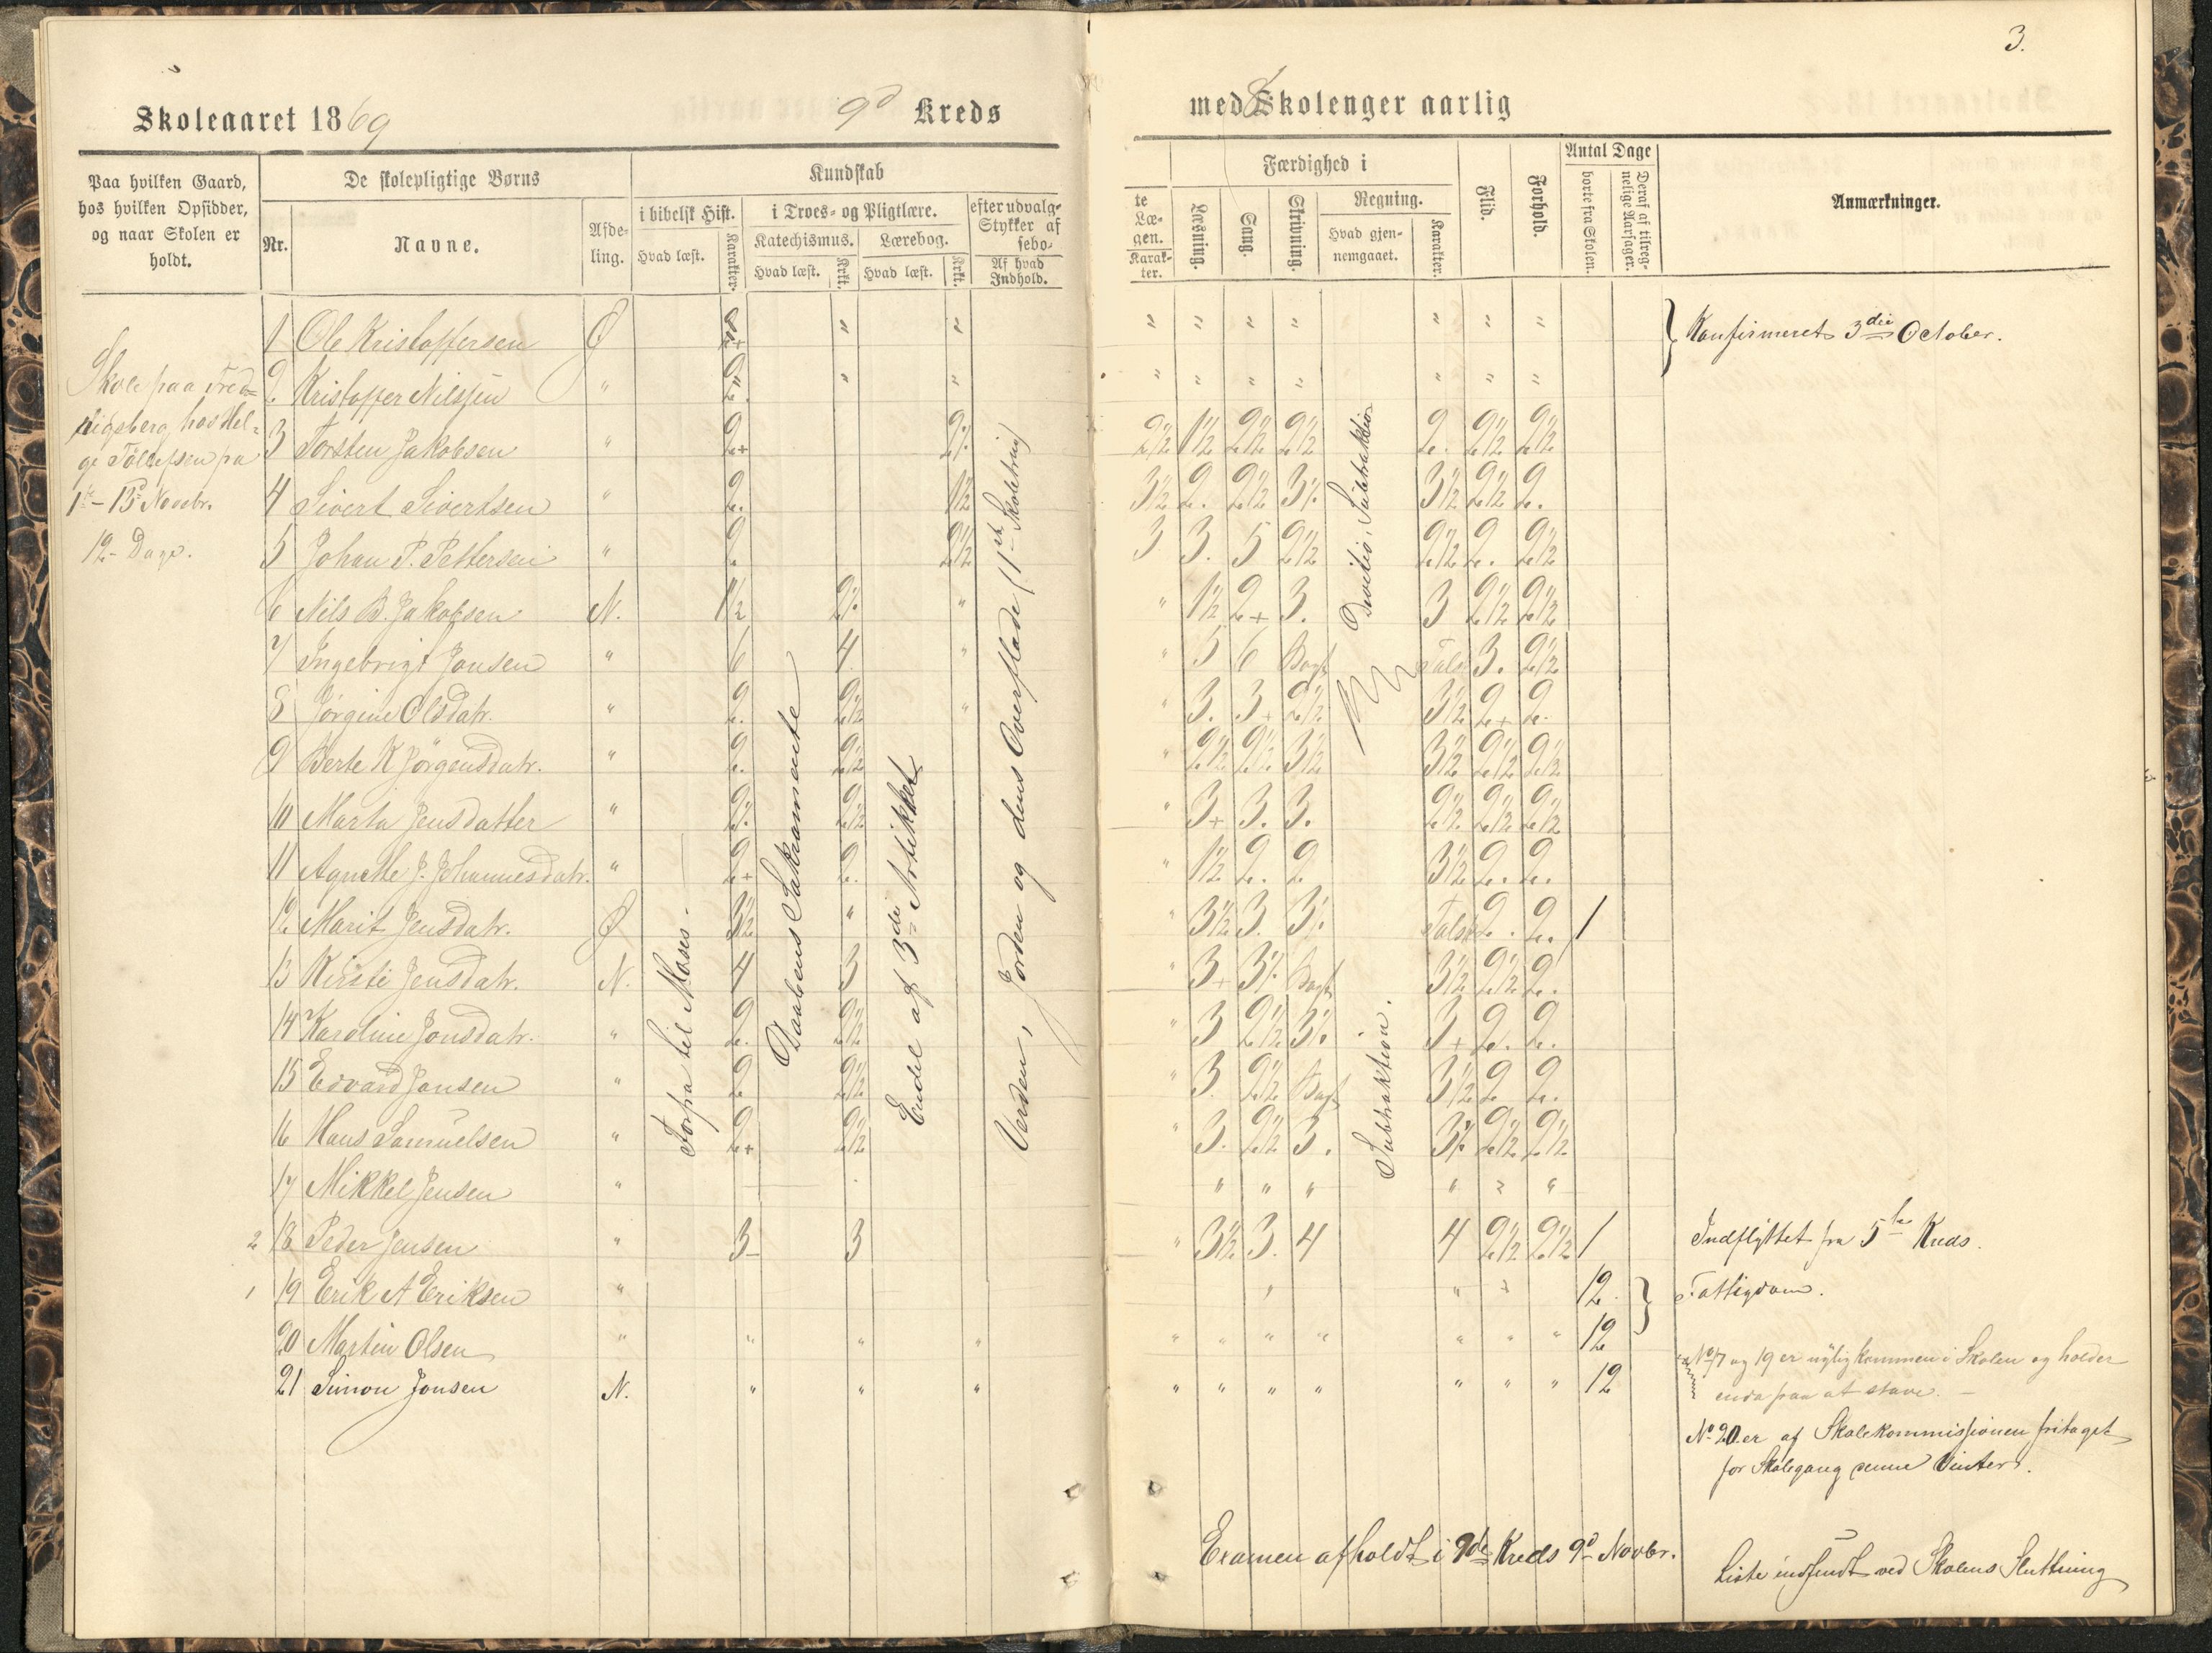 3.
Skoleaaret 1869 9d Kreds med 8 Skolenger aarlig
Paa hvilken Gaard, hos hvilken Opsidder, og naar Skolen er holdt.
De skolepligtige Børns
Nr.
Navne.
Afde-
ling.
Kundskab
i bibelsk Hist.
Hvad læst.
Karakter.
i Troes- og Pligtlære.
Katechismus.
Hvad læst.
Krkt.
Lærebog.
Hvad læst.
Krkt.
efter udvalg-
Stykker af
sebo-
Af hvad
Indhold.
te
Læ-
gen.
Karak-
ter.
Færdighed i
Læsning.
Sang.
Skrivning.
Regning.
Hvad gjen-
nemgaaet.
Karakter.
Flid.
Forhold.
Antal Dage
borte fra Skolen.
Deraf af tilreg-
nelige Aarsager.
Anmærkninger.
Skole paa Fred-
rigsberg, hos Hel-
ge Tollefsen fra
1te - 13d Novbr.
12 - Dage.
1 Ole Kristoffersen Ø 2+ " " " " " " " " " Konfirmeret 3die October.
2. Kristoffer Nilssen " 2. " " " " " " " " "
3 Torsten Jakobsen " 2+ 2% 2½ 1½ 2½ 2½ 2. 2½ 2½
4 Sivert Sivertsen " 2. 1½ 3½ 2. 2½ 3% 3½ 2½ 2.
5 Johan P. Pettersen " 2. 2½ 3 3. 5 2½ 2½ 2. 2½
6 Nils B. Jakobsen N. 1½ 2% " " 1½ 2+ 3. 3 2½ 2½
7 Ingebrigt Jonsen " 6 4. " " 5 6 Bogst Tals 3. 2½
8 Jørgine Olsdatr. " 2. 2½ " " 3. 3+ 2½ 3½ 2+ 2.
9 Berte K Jörgensdatr. " 2. 2½ " 2½ 2% 3½ 3½ 2½ 2½
10 Marta Jensdatter " 2% 2½ " 3+ 3. 3. 2½ 2½ 2½
11 Agnethe J. Johannesdatr. " 2+ 2. " 1½ 2. 2 3½ 2. 2.
12 Marit Jensdatr. Ø 3½ " " 3½ 3. 3% Tals 2. 2. 1
13 Kirsti Jensdatr. N. 4 3 " 3+ 3% Bogst 3½ 2½ 2.
14 Karoline Jonsdatr. " 2. 2½ " 3 2½ 3% 3+ 2. 2.
15 Edvard Jonsen " 2 2½ " 3. 2½ Bogst 3½ 2 2.
16 Hans Samuelsen " 2+ 2½ " 3. 2½ 3. 3% 2½ 2½
17 Mikkel Jensen " " " " " " "
2 18 Peder Jensen " 3- 3 " 3½ 3. 4 4 2½ 2½ 1 Indflyttet fra 5te Kreds.
1 19 Erik A Eriksen " " " 12. Fattigdom.
20 Martin Olsen " " " " " " " " " " " 12
21 Simon Jonsen N. " " " " " " " " " " 12
Forfra til Moses.
Daabens Sakramente
Endel af 3die Artikkel
Verden, Jorden og dens Overflade (1ste Skoletrin)
Devitio, Subtraktion
Subtraktion.
No 17 og 19 er nylig kommen i Skolen og holder
enda paa at stave. -
No 20. er af Skolekommissionen fritaget
for Skolegang denne Vinter.
Examen afholdt i 9de Kreds 9d Novbr.
Liste indsendt ved Skolens Slutning